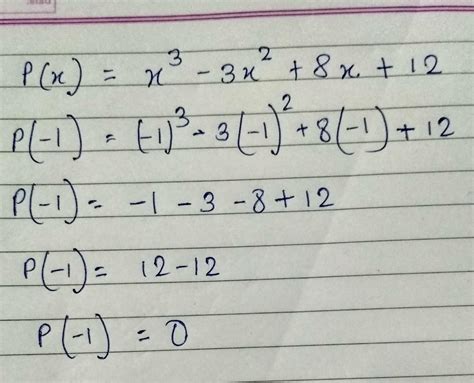 P(x) = x³ - 3x² + 8x + 12
P(-1) = (-1)³ - 3(-1)² + 8(-1) + 12
P(-1) = -1 - 3 - 8 + 12
P(-1) = 12 - 12
P(-1) = 0